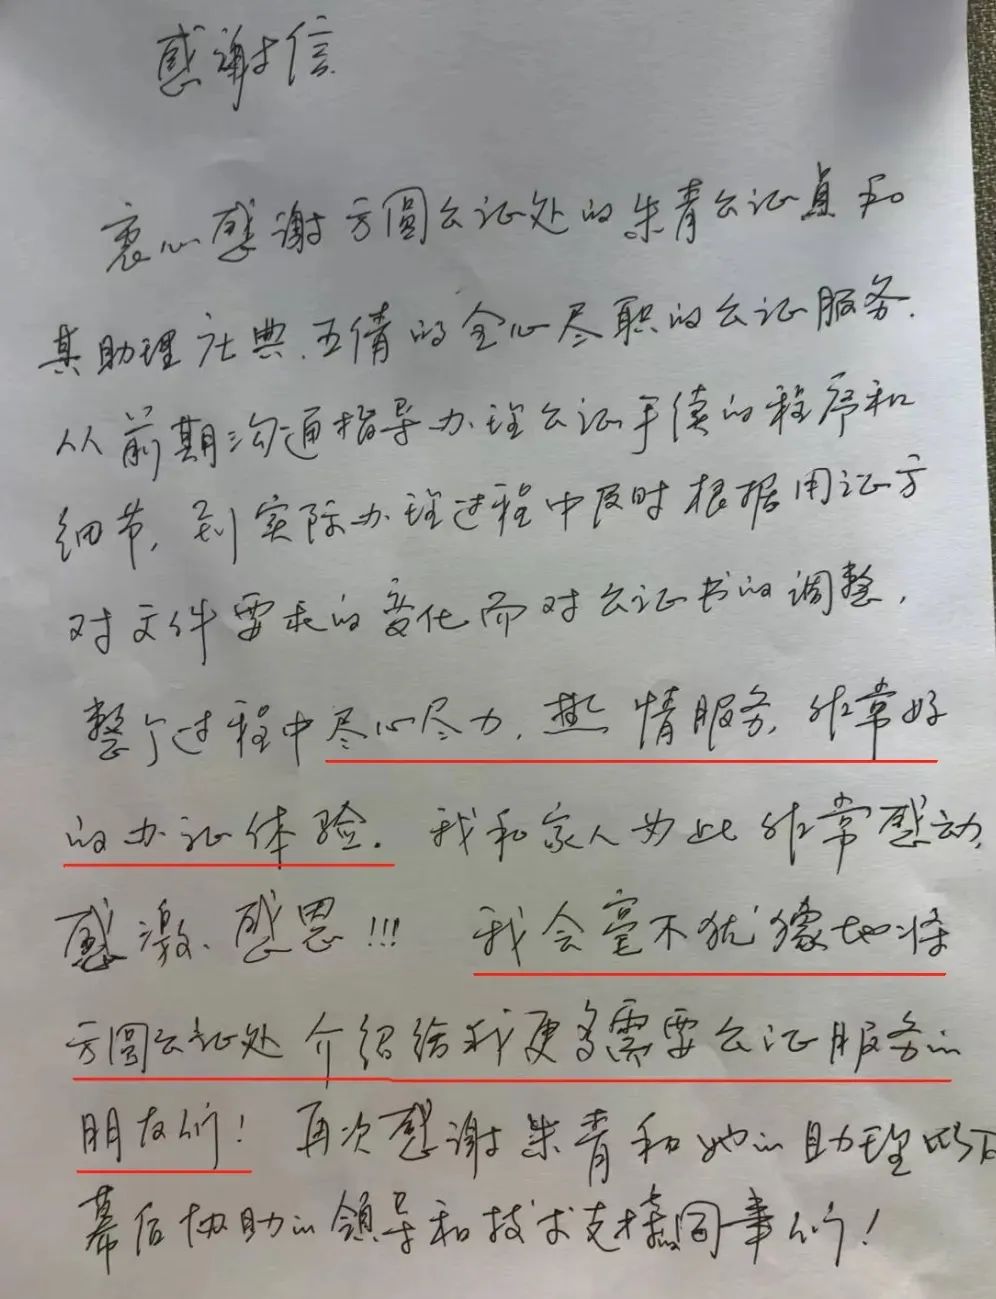 感谢信
衷心感谢方圆公证处的朱青公证员和
其助理杜典、王倩的全心尽职的公证服务.
从前期沟通指导办理公证手续的程序和
细节,到实际办理过程中及时根据用证方
对文件要求的变化而对公证书的调整,
整个过程中尽心尽力,热情服务,非常好
的办证体验. 我和家人为此非常感动,
感激、感恩!!! 我会毫不犹豫地将
方圆公证处介绍给我更多需要公证服务的
朋友们! 再次感谢朱青和她的助理以及
幕后协助的领导和技术支持同事们!